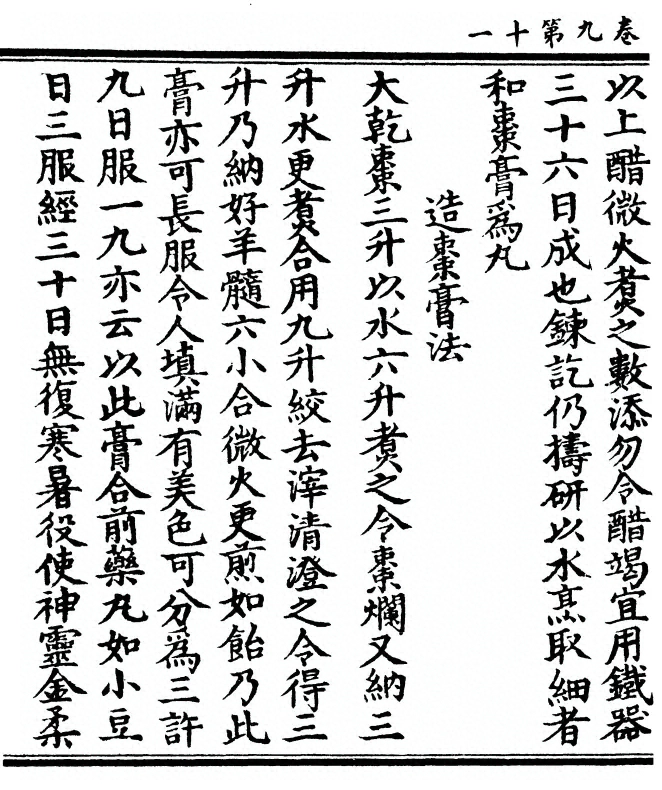 卷九第十一
以上醋微火煑之數添勿令醋竭宜用鐵器
三十六日成也鍊訖仍擣研以水熬取細者
和棗膏爲丸
造棗膏法
大乾棗三升以水六升煑之令棗爛又納三
升水更煑合用九升絞去滓清澄之令得三
升乃納好羊髓六小合微火更煎如飴乃此
膏亦可長服令人填滿有美色可分爲三許
九日服一九亦云以此膏合前藥丸如小豆
日三服經三十日無復寒暑役使神靈金柔